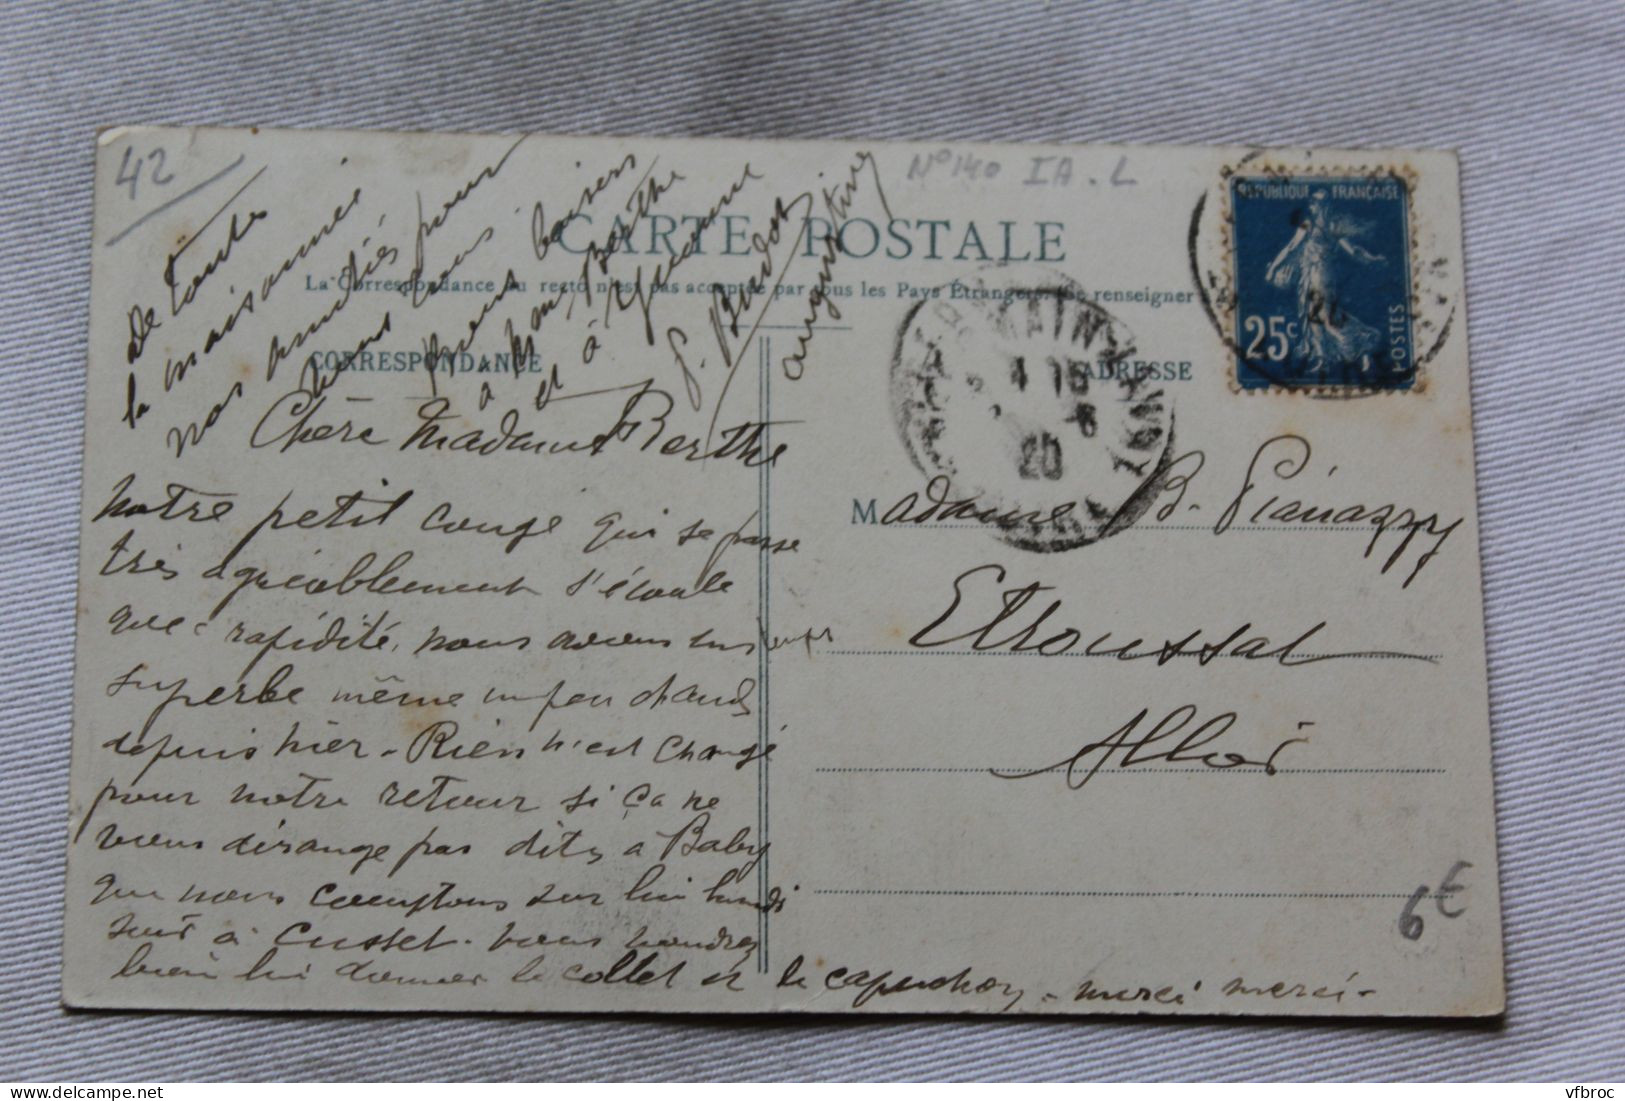 42
N° 140 IA.L
CARTE POSTALE
La Correspondance au recto n'est pas acceptée par tous les Pays Étrangers. Se renseigner
CORRESPONDANCE
ADRESSE
REPUBLIQUE FRANÇAISE
25c
POSTES
20
De toute
la maisonnée
nos amitiés pour
vous tous
baisers
à Mme Berthe
et à Yvonne
Augustine
Chère Madame Berthe
Notre petit congé qui se passe
très agréablement s'écoule
avec rapidité, nous avons un temps
superbe même un peu chaud
depuis hier - Rien n'est changé
pour notre retour si ça ne
vous dérange pas dites à Baby
que nous comptons sur lui lundi
soir à Cusset. Vous voudrez
bien lui donner le collet et le capuchon - merci merci -
Madame B.
Etroussat
Allier
6€
vfbroc